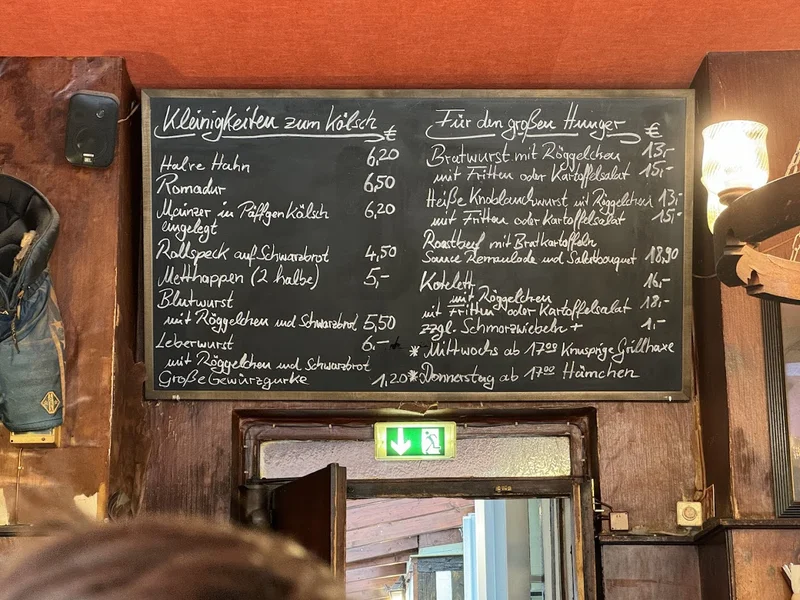 Kleinigkeiten zum Kölsch
€
Halve Hahn 6,20
Romadur 6,50
Mainzer in Päffgen Kölsch 6,20
eingelegt
Rollspeck auf Schwarzbrot 4,50
Metthappen (2 halbe) 5,-
Blutwurst
mit Röggelchen und Schwarzbrot 5,50
Leberwurst 6,-
mit Röggelchen und Schwarzbrot
Große Gewürzgurke 1,20
Für den großen Hunger
€
Bratwurst mit Röggelchen 13,-
mit Fritten oder Kartoffelsalat 15,-
Heiße Knoblauchwurst mit Röggelchen 13,-
mit Fritten oder Kartoffelsalat 15,-
Roastbeef mit Bratkartoffeln
Sauce Remoulade und Salatbouquet 18,90
Kotelett 16,-
mit Röggelchen
mit Fritten oder Kartoffelsalat 18,-
zzgl. Schmorzwiebeln + 1,-
* Mittwochs ab 17⁰⁰ Knusprige Grillhaxe
* Donnerstag ab 17⁰⁰ Hämchen